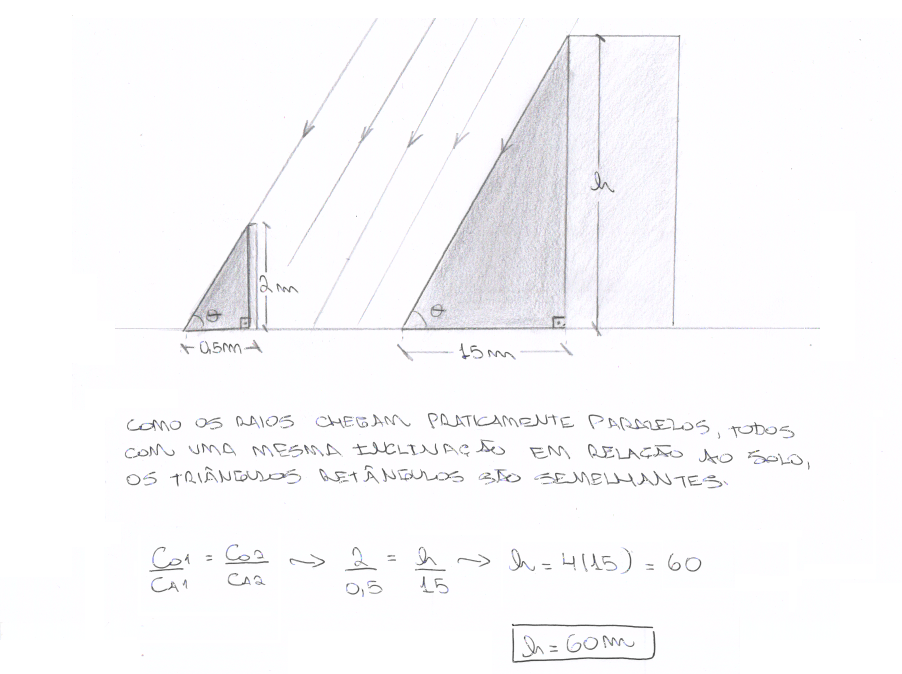 h
2m
θ
θ
0,5m
15m
COMO OS RAIOS CHEGAM PRATICAMENTE PARALELOS, TODOS
COM UMA MESMA INCLINAÇÃO EM RELAÇÃO AO SOLO,
OS TRIÂNGULOS RETÂNGULOS SÃO SEMELHANTES.
CO1/CA1 = CO2/CA2 ⇝ 2/0,5 = h/15 ⇝ h = 4(15) = 60
h = 60m